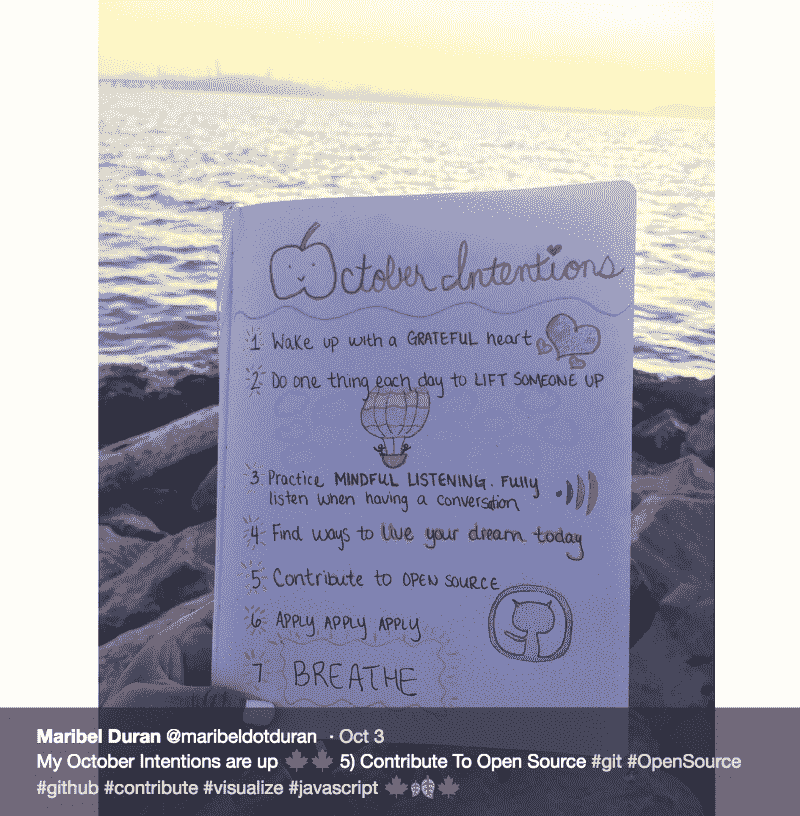 October Intentions
1 Wake up with a GRATEFUL heart
2 Do one thing each day to LIFT SOMEONE UP
3 Practice MINDFUL LISTENING. Fully
listen when having a conversation
4 Find ways to live your dream today
5 Contribute to OPEN SOURCE
6 APPLY APPLY APPLY
7 BREATHE
Maribel Duran @maribeldotduran · Oct 3
My October Intentions are up 🍁🍁 5) Contribute To Open Source #git #OpenSource
#github #contribute #visualize #javascript 🍁🍃🍁